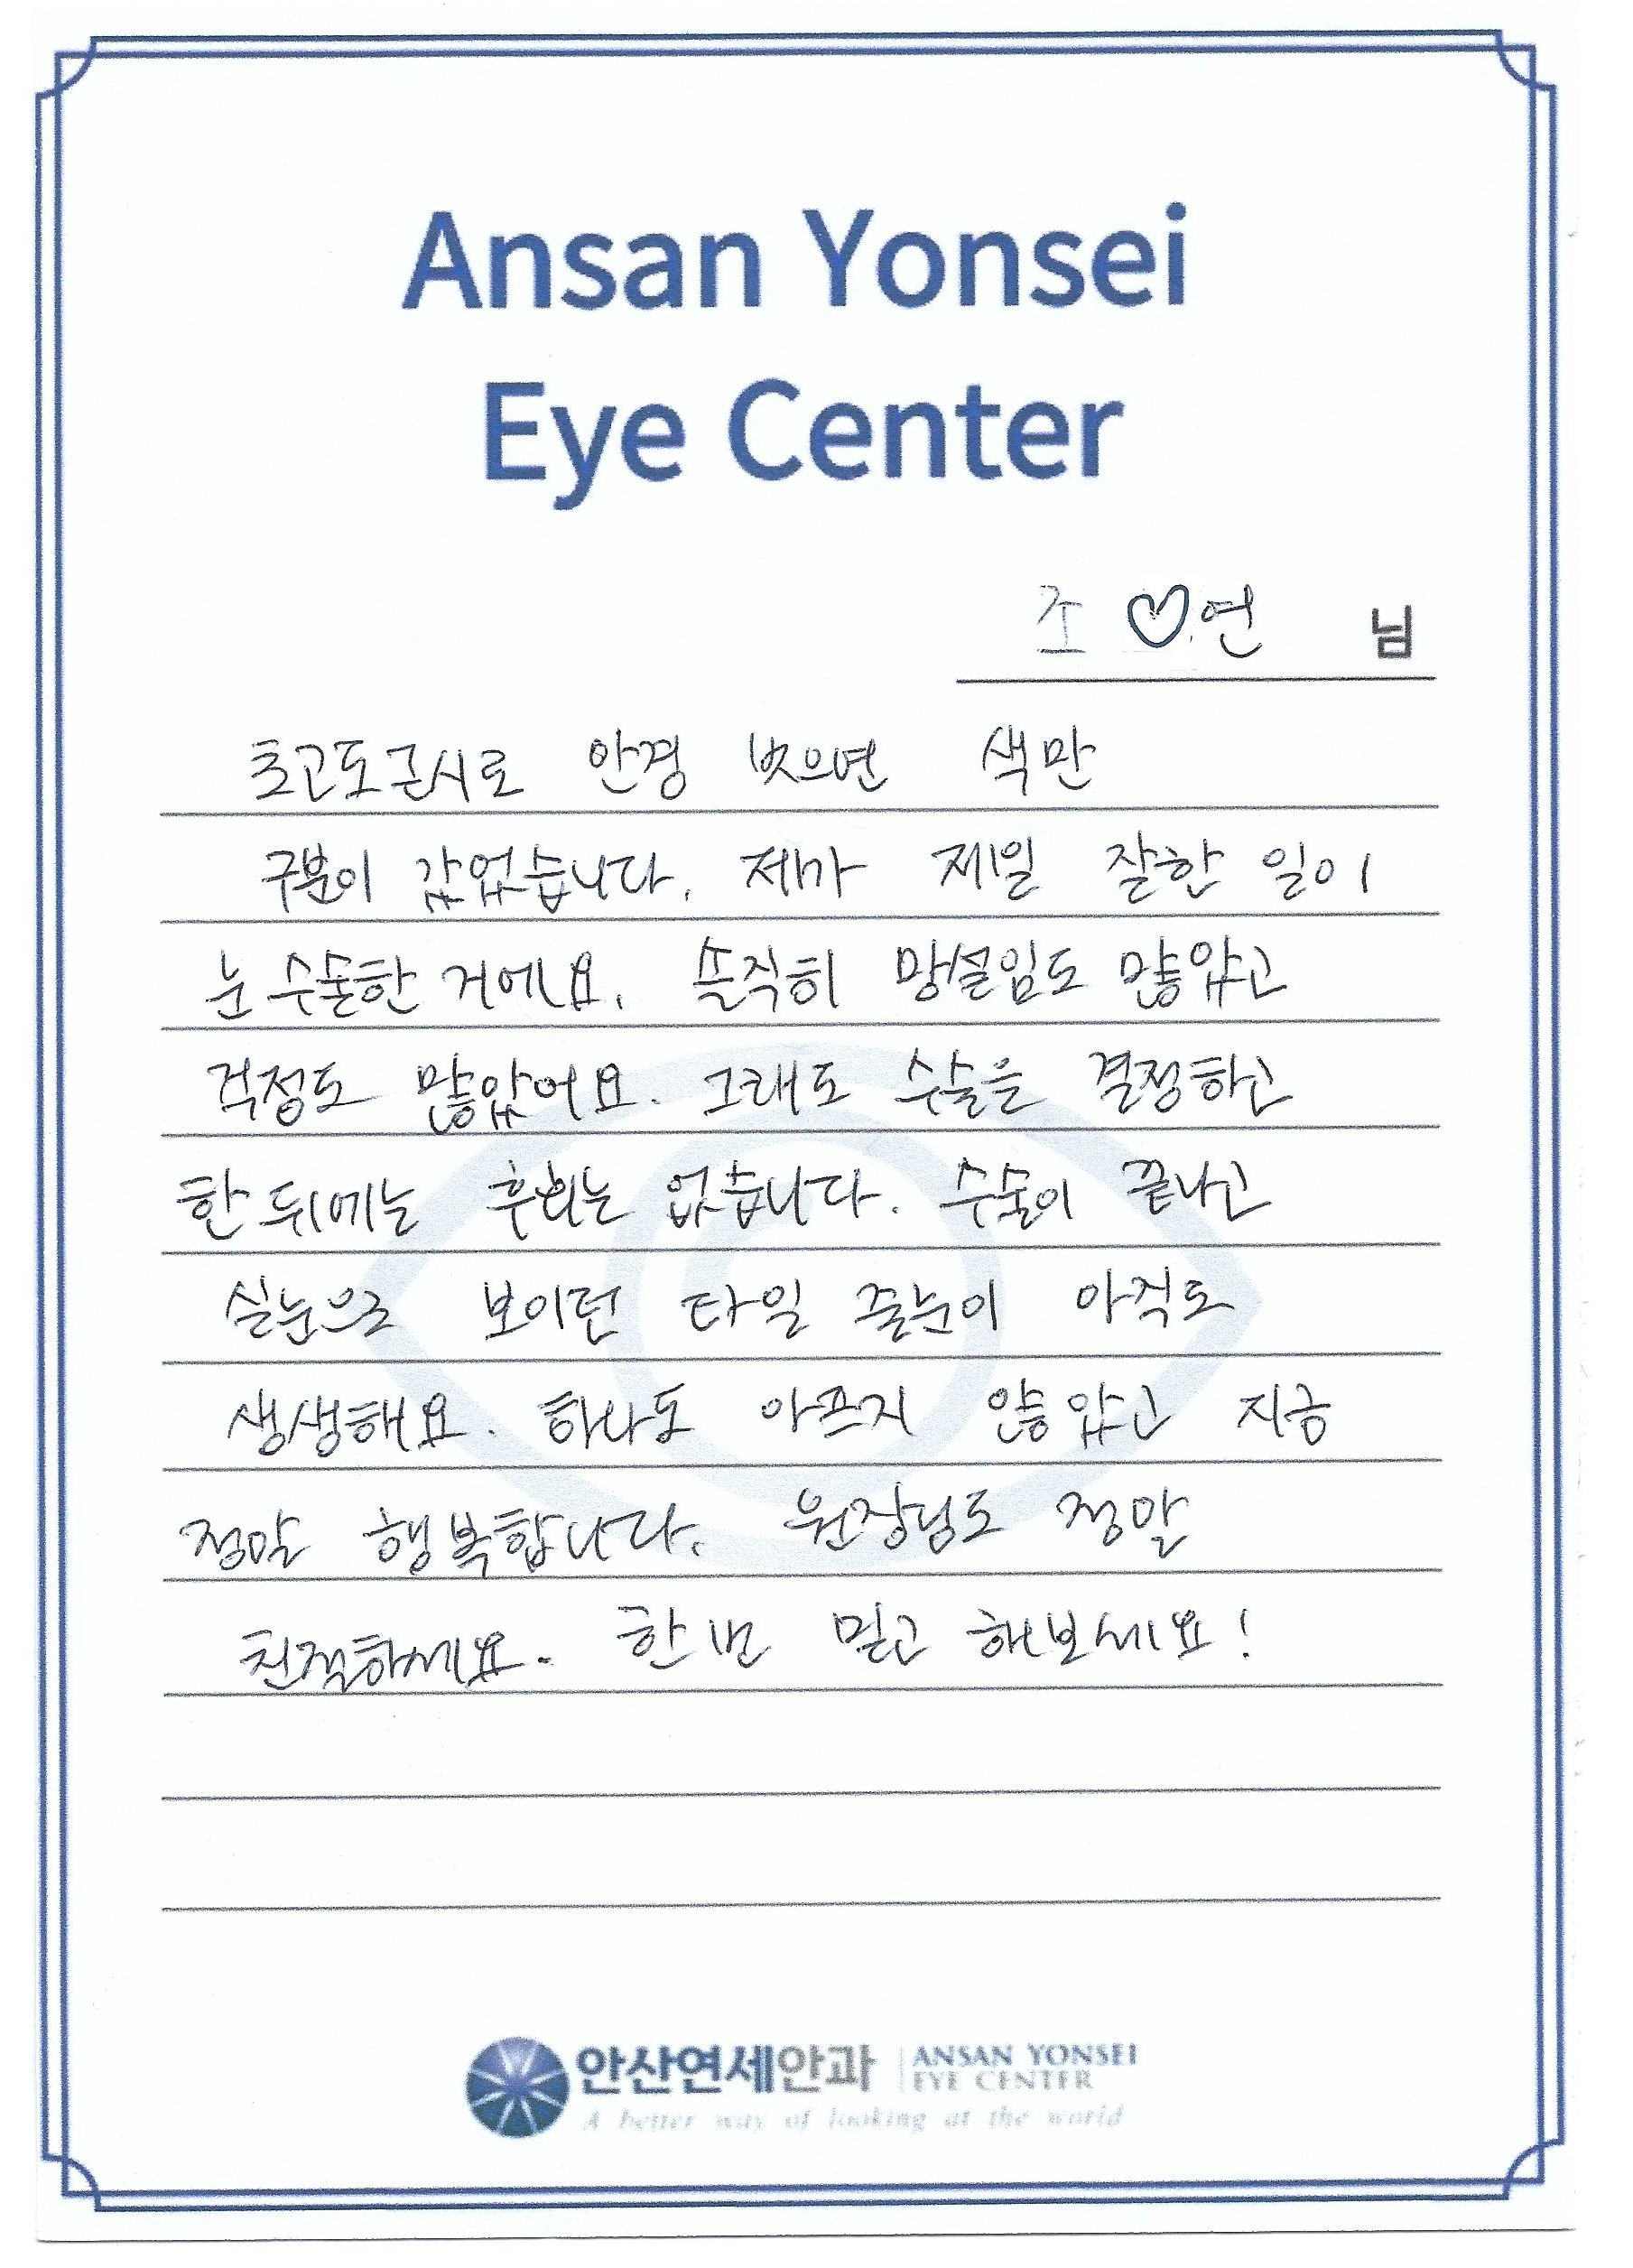 Ansan Yonsei
Eye Center
조 ♡연 님
초고도근시로 안경 벗으면 색만
구분이 갔었습니다. 제가 제일 잘한 일이
눈 수술한 거에요. 솔직히 망설임도 많았고
걱정도 많았어요. 그래도 수술을 결정하고
한 뒤에는 후회는 없습니다. 수술이 끝나고
실눈으로 보이던 타일 줄눈이 아직도
생생해요. 하나도 아프지 않았고 지금
정말 행복합니다. 원장님도 정말
친절하세요. 한 번 믿고 해보세요!
안산연세안과 ANSAN YONSEI
EYE CENTER
A better way of looking at the world